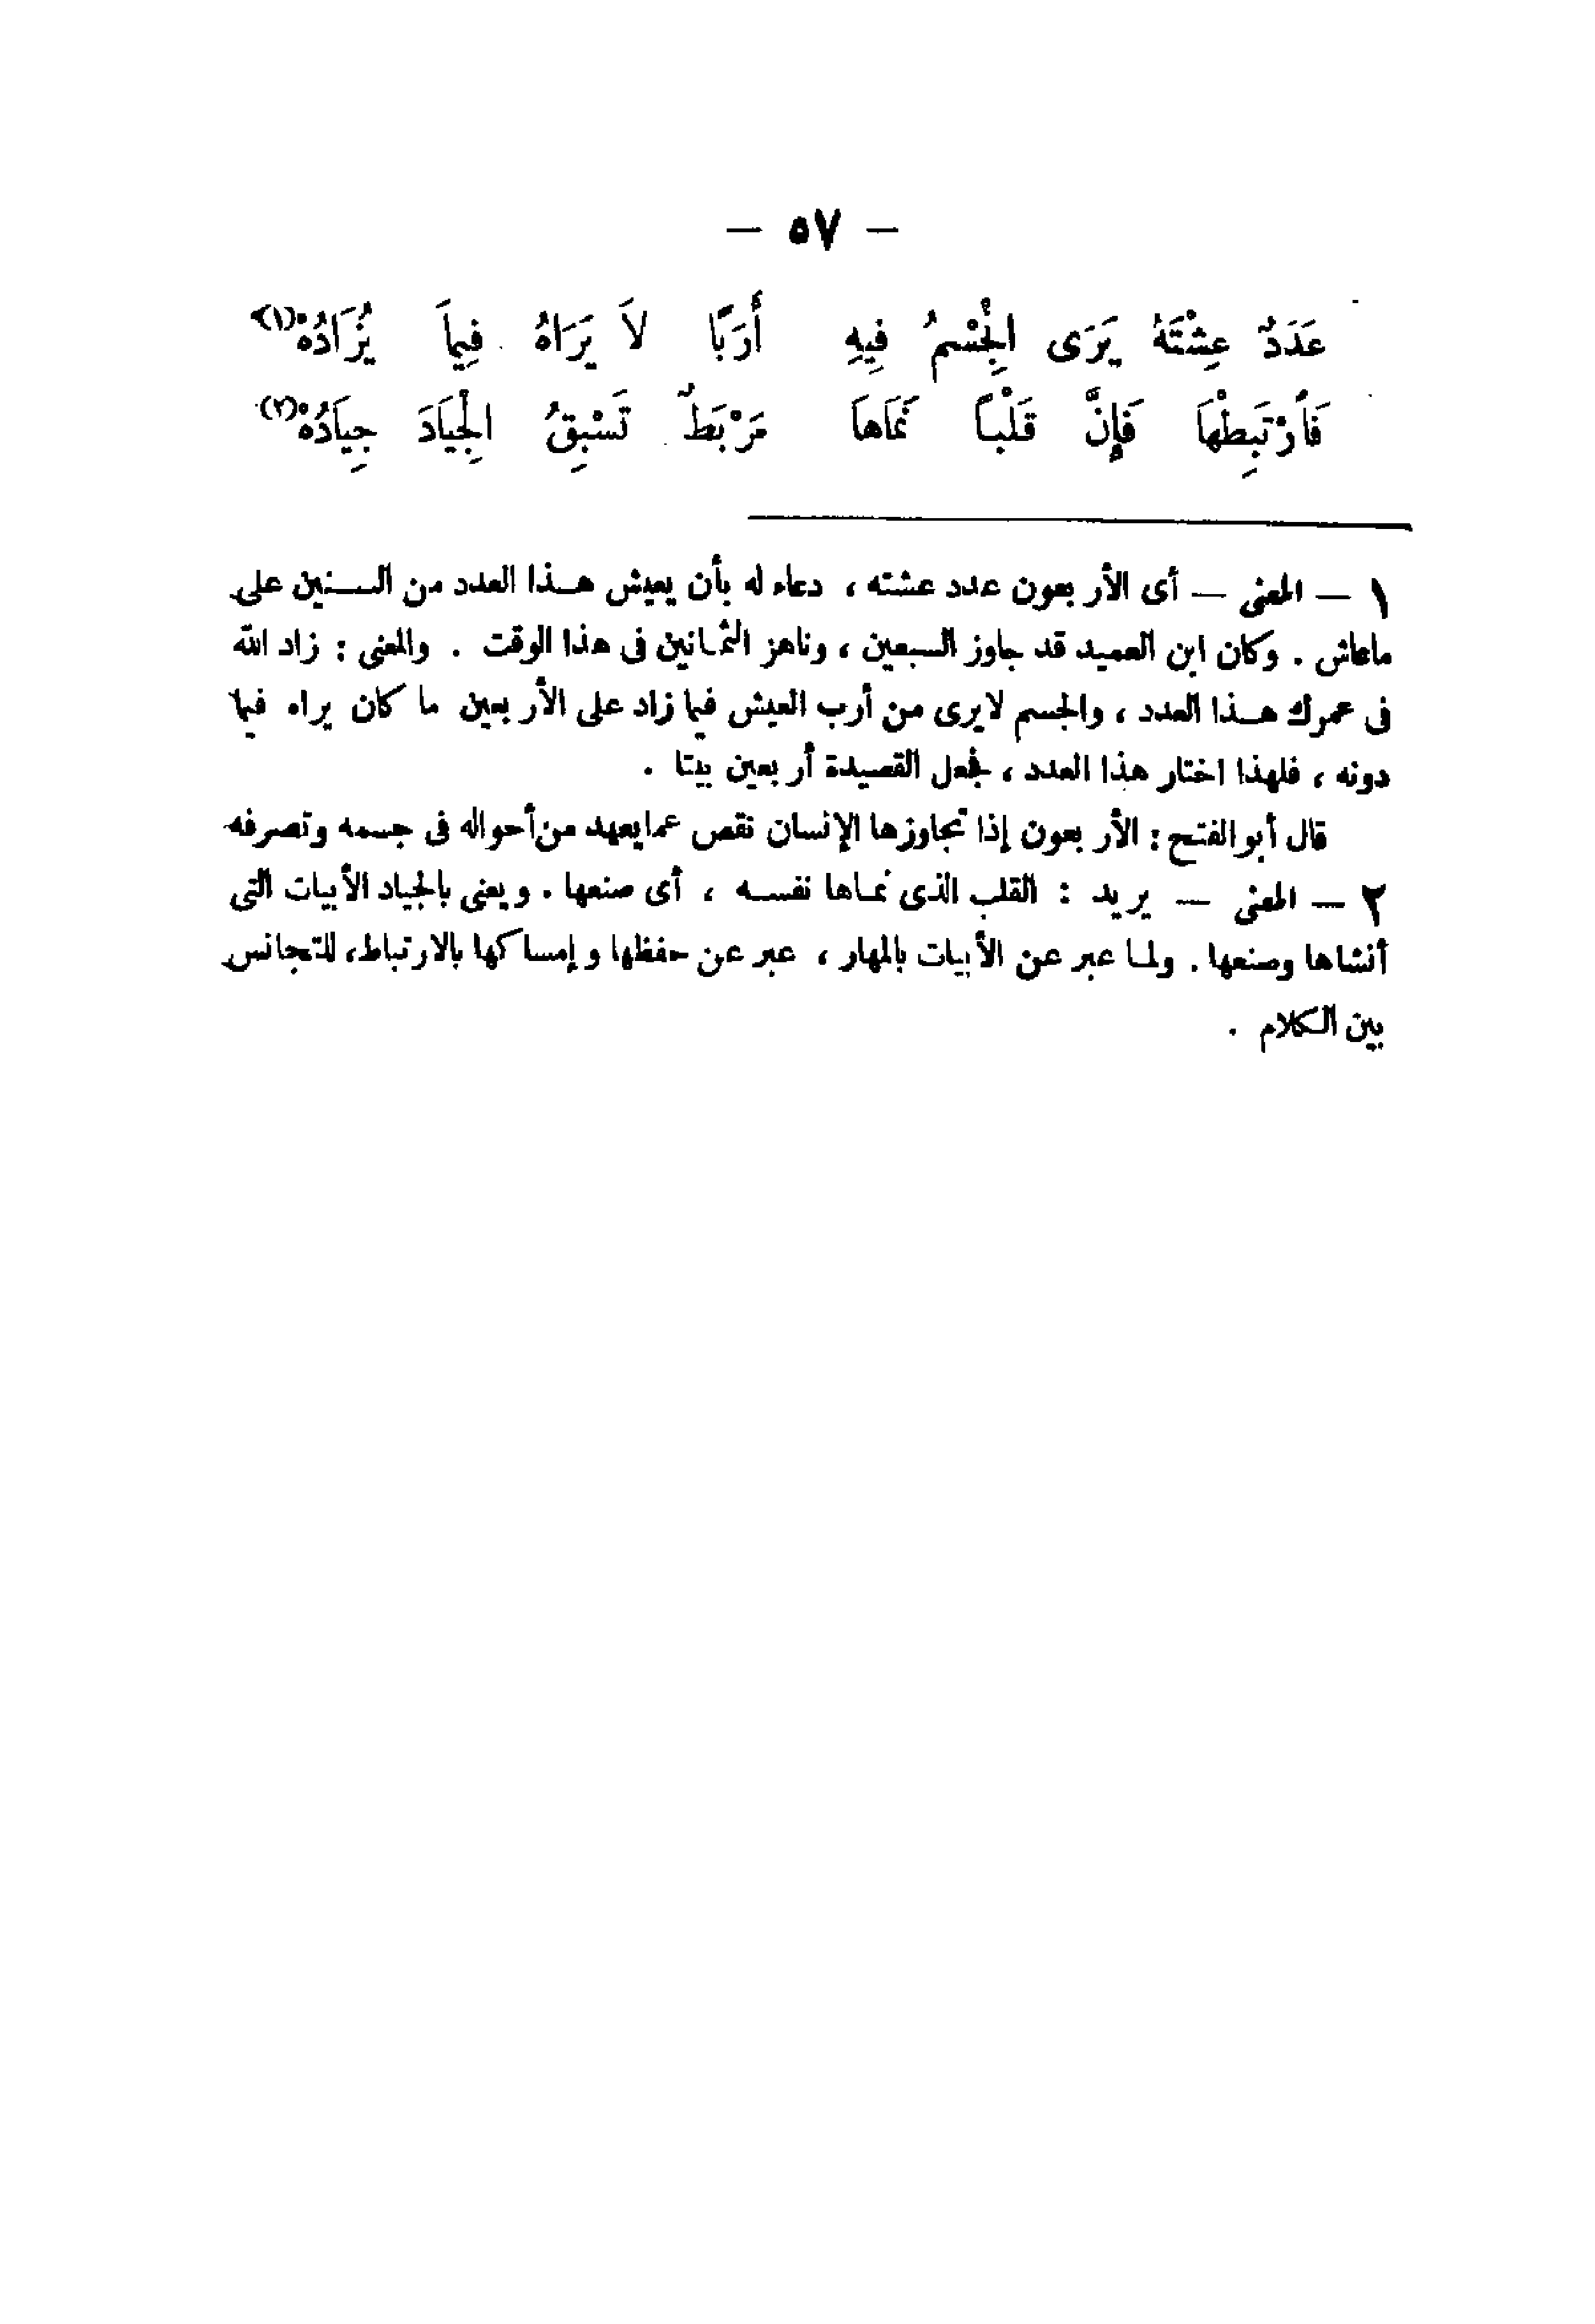 — ٥٧ —
عَدَدٌ عِشْتَهُ يَرَى الْجِسْمُ فِيهِ أَرَبًا لاَ يَرَاهُ فِيمَا يُزَادُهْ(١)
فَارْتَبِطْهَا فَإِنَّ قَلْبًا نَمَاهَا مَرْبَطٌ تَسْبِقُ الْجِيَادَ جِيَادُهْ(٢)
١ — المعنى — أى الأربعون عدد عشته ، دعاء له بأن يعيش هذا العدد من السنين على
ماعاش . وكان ابن العميد قد جاوز السبعين ، وناهز الثمانين فى هذا الوقت . والمعنى : زاد الله
فى عمرك هذا العدد ، والجسم لايرى من أرب العيش فيما زاد على الأربعين ما كان يراه فيما
دونه ، فلهذا اختار هذا العدد ، فجعل القصيدة أربعين بيتا .
قال أبو الفتح : الأربعون إذا تجاوزها الإنسان نقص عمايعهد من أحواله فى جسمه وتصرفه
٢ — المعنى — يريد : القلب الذى نماها نفسه ، أى صنعها . ويعنى بالجياد الأبيات التى
أنشاها وصنعها . ولما عبر عن الأبيات بالمهار ، عبر عن حفظها وإمساكها بالارتباط، للتجانس
بين الكلام .